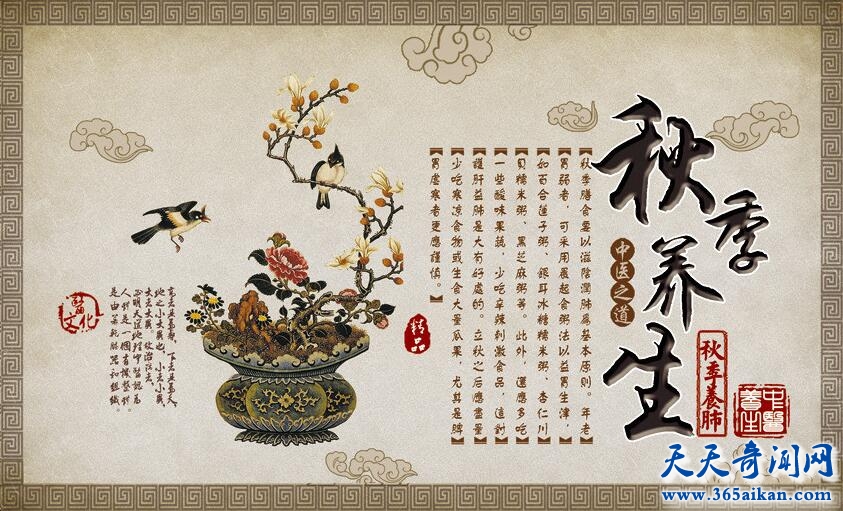 秋季养生
中医之道
秋季養肺
中醫養生
秋季膳食要以滋陰潤肺為基本原則。年老
胃弱者，可采用晨起食粥法以益胃生津，
如百合蓮子粥、銀耳冰糖糯米粥、杏仁川
貝糯米粥、黑芝麻粥等。此外，還應多吃
一些酸味果蔬，少吃辛辣刺激食品，這對
護肝益肺是大有好處的。立秋之后應盡量
少吃寒涼食物或生食大量瓜果，尤其是脾
胃虛寒者更應謹慎。
精品
醫文化
天天奇闻网
www.365aikan.com